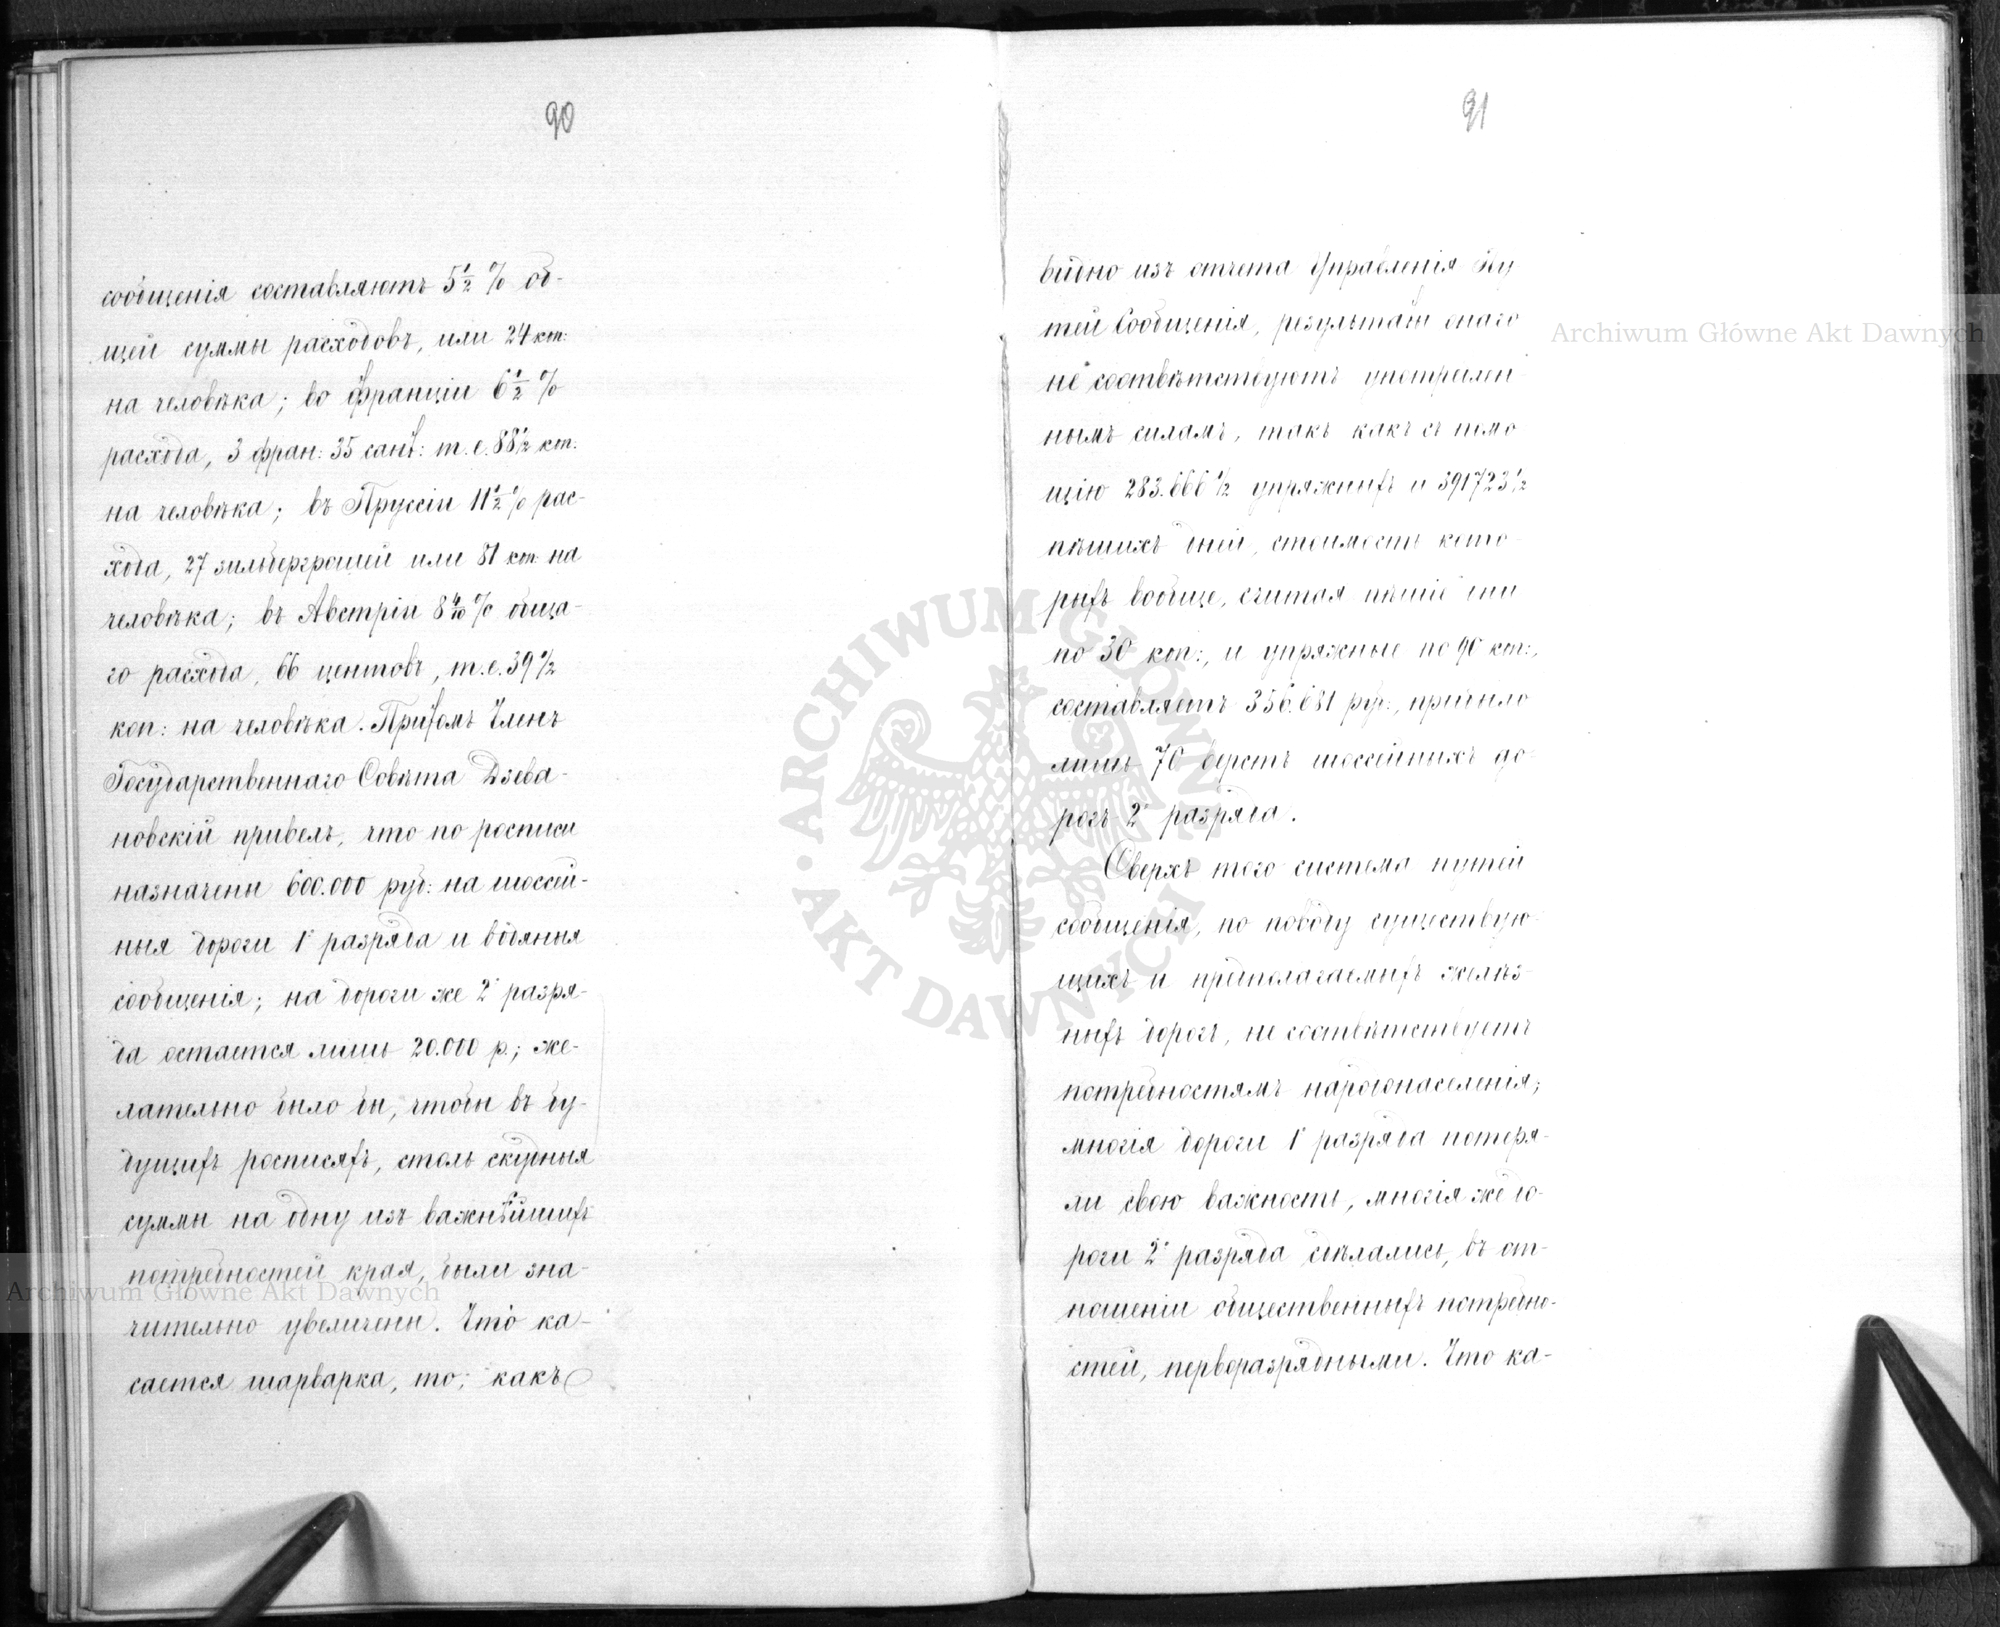 90
сообщенія составляютъ 5 1/2 % об-
щей суммы расходовъ, или 24 коп:
на человѣка; во Франціи 6 1/2 %
расхода, 3 фран: 35 сант: т.е. 88 1/2 коп:
на человѣка; въ Пруссіи 11 1/2 % рас-
хода, 27 зильбергрошей или 81 коп: на
человѣка; въ Австріи 8 4/10 % обща-
го расхода, 66 центовъ, т.е. 39 1/2
коп: на человѣка. Притомъ Членъ
Государственнаго Совѣта Дзева-
новскій привелъ, что по росписи
назначены 600.000 руб: на шоссей-
ныя дороги 1го разряда и водяныя
сообщенія; на дороги же 2го разря-
да остается лишь 20.000 р.; же-
лательно было бы, чтобы въ бу-
дущихъ росписяхъ, столь скудныя
суммы на одну изъ важнѣйшихъ
потребностей края, были зна-
чительно увеличены. Что ка-
сается шарварка, то, какъ
91
видно изъ отчета Управленія Пу
тей Сообщенія, результаты онаго
не соотвѣтствуютъ употреблен
нымъ силамъ, такъ какъ съ помо
щію 283.666 1/2 упряжныхъ и 391723 1/2
пѣшихъ дней, стоимость кото-
рыхъ вообще, считая пѣшіе дни
по 30 коп:, и упряжные по 90 коп:,
составляетъ 356.681 руб:, прибыло
лишь 70 верстъ шоссейныхъ до-
рогъ 2го разряда.
Сверхъ того система путей
сообщенія, по поводу существую-
щихъ и предполагаемыхъ желѣз-
ныхъ дорогъ, не соотвѣтствуетъ
потребностямъ народонаселенія;
многія дороги 1го разряда потеря-
ли свою важность, многія же до-
роги 2го разряда сдѣлались, въ от-
ношеніи общественныхъ потребно-
стей, перворазрядными. Что ка-
Archiwum Główne Akt Dawnych
ARCHIWUM GŁÓWNE AKT DAWNYCH
Archiwum Główne Akt Dawnych